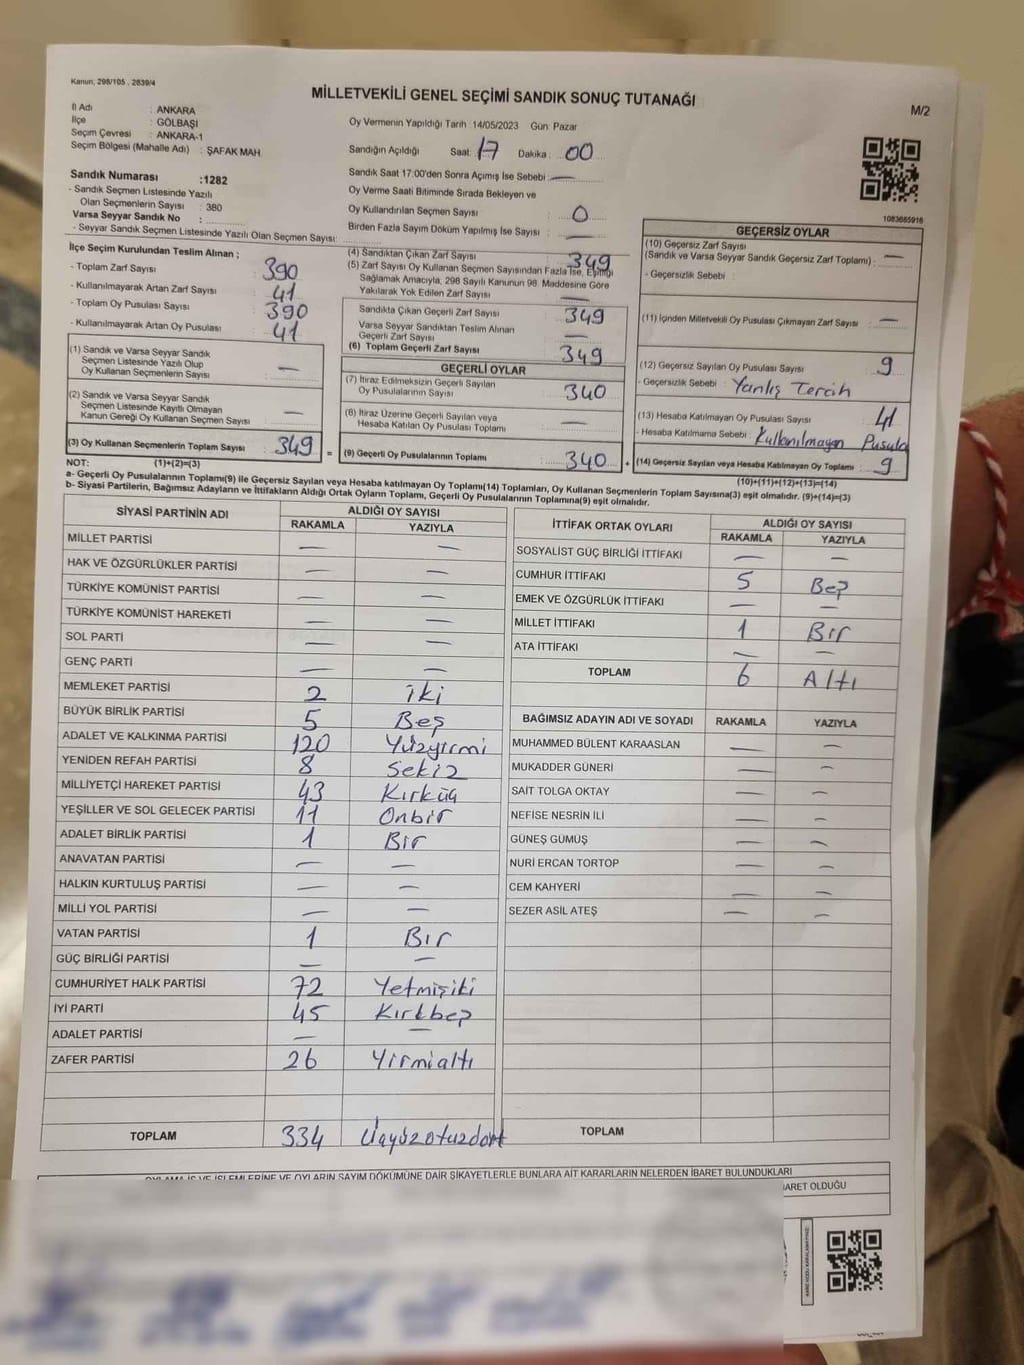 Kanun, 298/105 , 2839/4
MİLLETVEKİLİ GENEL SEÇİMİ SANDIK SONUÇ TUTANAĞI
M/2
İl Adı : ANKARA
İlçe : GÖLBAŞI
Seçim Çevresi : ANKARA-1
Seçim Bölgesi (Mahalle Adı) : ŞAFAK MAH.
Oy Vermenin Yapıldığı Tarih :14/05/2023 Gün: Pazar
Sandığın Açıldığı Saat: 17 Dakika: 00
Sandık Saat 17.00'den Sonra Açımış İse Sebebi: —
Oy Verme Saati Bitiminde Sırada Bekleyen ve
Oy Kullandırılan Seçmen Sayısı : 0
Birden Fazla Sayım Döküm Yapılmış İse Sayısı : —
Sandık Numarası :1282
- Sandık Seçmen Listesinde Yazılı
Olan Seçmenlerin Sayısı : 380
Varsa Seyyar Sandık No :
- Seyyar Sandık Seçmen Listesinde Yazılı Olan Seçmen Sayısı:
1083665916
İlçe Seçim Kurulundan Teslim Alınan ;
- Toplam Zarf Sayısı : 390
- Kullanılmayarak Artan Zarf Sayısı : 41
- Toplam Oy Pusulası Sayısı : 390
- Kullanılmayarak Artan Oy Pusulası : 41
(1) Sandık ve Varsa Seyyar Sandık
Seçmen Listesinde Yazılı Olup
Oy Kullanan Seçmenlerin Sayısı : —
(2) Sandık ve Varsa Seyyar Sandık
Seçmen Listesinde Kayıtlı Olmayan
Kanun Gereği Oy Kullanan Seçmen Sayısı : —
(3) Oy Kullanan Seçmenlerin Toplam Sayısı : 349 =
(4) Sandıktan Çıkan Zarf Sayısı : 349
(5) Zarf Sayısı Oy Kullanan Seçmen Sayısından Fazla İse, Eşitliği
Sağlamak Amacıyla, 298 Sayılı Kanunun 98. Maddesine Göre
Yakılarak Yok Edilen Zarf Sayısı : —
Sandıkta Çıkan Geçerli Zarf Sayısı : 349
Varsa Seyyar Sandıktan Teslim Alınan
Geçerli Zarf Sayısı : —
(6) Toplam Geçerli Zarf Sayısı : 349
GEÇERLİ OYLAR
(7) İtiraz Edilmeksizin Geçerli Sayılan
Oy Pusulalarının Sayısı : 340
(8) İtiraz Üzerine Geçerli Sayılan veya
Hesaba Katılan Oy Pusulası Toplamı : —
(9) Geçerli Oy Pusulalarının Toplamı : 340 +
GEÇERSİZ OYLAR
(10) Geçersiz Zarf Sayısı
(Sandık ve Varsa Seyyar Sandık Geçersiz Zarf Toplamı) : —
- Geçersizlik Sebebi :
(11) İçinden Milletvekili Oy Pusulası Çıkmayan Zarf Sayısı : —
(12) Geçersiz Sayılan Oy Pusulası Sayısı : 9
- Geçersizlik Sebebi : Yanlış Tercih
(13) Hesaba Katılmayan Oy Pusulası Sayısı : 41
- Hesaba Katılmama Sebebi : Kullanılmayan Pusula
(14) Geçersiz Sayılan veya Hesaba Katılmayan Oy Toplamı : 9
NOT: (1)+(2)=(3) (10)+(11)+(12)+(13)=(14)
a- Geçerli Oy Pusulalarının Toplamı(9) ile Geçersiz Sayılan veya Hesaba katılmayan Oy Toplamı(14) Toplamları, Oy Kullanan Seçmenlerin Toplam Sayısına(3) eşit olmalıdır. (9)+(14)=(3)
b- Siyasi Partilerin, Bağımsız Adayların ve İttifakların Aldığı Ortak Oyların Toplamı, Geçerli Oy Pusulalarının Toplamına(9) eşit olmalıdır.
SİYASİ PARTİNİN ADI ALDIĞI OY SAYISI
RAKAMLA YAZIYLA
MİLLET PARTİSİ — —
HAK VE ÖZGÜRLÜKLER PARTİSİ — —
TÜRKİYE KOMÜNİST PARTİSİ — —
TÜRKİYE KOMÜNİST HAREKETİ — —
SOL PARTİ — —
GENÇ PARTİ — —
MEMLEKET PARTİSİ 2 iki
BÜYÜK BİRLİK PARTİSİ 5 Beş
ADALET VE KALKINMA PARTİSİ 120 Yüzyirmi
YENİDEN REFAH PARTİSİ 8 Sekiz
MİLLİYETÇİ HAREKET PARTİSİ 43 Kırküç
YEŞİLLER VE SOL GELECEK PARTİSİ 11 Onbir
ADALET BİRLİK PARTİSİ 1 Bir
ANAVATAN PARTİSİ — —
HALKIN KURTULUŞ PARTİSİ — —
MİLLİ YOL PARTİSİ — —
VATAN PARTİSİ 1 Bir
GÜÇ BİRLİĞİ PARTİSİ — —
CUMHURİYET HALK PARTİSİ 72 Yetmişiki
İYİ PARTİ 45 Kırkbeş
ADALET PARTİSİ — —
ZAFER PARTİSİ 26 Yirmialtı
TOPLAM 334 Üçyüzotuzdört
İTTİFAK ORTAK OYLARI ALDIĞI OY SAYISI
RAKAMLA YAZIYLA
SOSYALİST GÜÇ BİRLİĞİ İTTİFAKI — —
CUMHUR İTTİFAKI 5 Beş
EMEK VE ÖZGÜRLÜK İTTİFAKI — —
MİLLET İTTİFAKI 1 Bir
ATA İTTİFAKI — —
TOPLAM 6 Altı
BAĞIMSIZ ADAYIN ADI VE SOYADI RAKAMLA YAZIYLA
MUHAMMED BÜLENT KARAASLAN — —
MUKADDER GÜNERİ — —
SAİT TOLGA OKTAY — —
NEFİSE NESRİN İLİ — —
GÜNEŞ GÜMÜŞ — —
NURİ ERCAN TORTOP — —
CEM KAHYERİ — —
SEZER ASİL ATEŞ — —
TOPLAM
OYLAMA İŞ VE İŞLEMLERİNE VE OYLARIN SAYIM DÖKÜMÜNE DAİR ŞİKAYETLERLE BUNLARA AİT KARARLARIN NELERDEN İBARET BULUNDUKLARI
BARET OLDUĞU